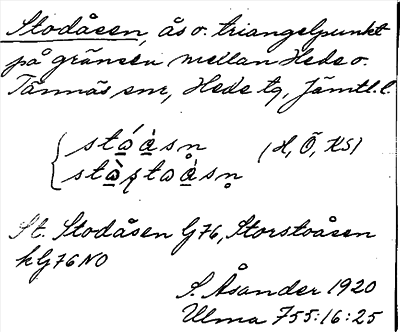 Stodåsen, ås o. triangelpunkt
på gränsen mellan Hede o.
Tännäs snr, Hede tg, Jämtl. l.
stóåsn (H, Õ, KS)
stòṣtoåsn
St. Stodåsen G76, Storstoåsen
k G76 NO
S. Åsander 1920
Ulma 755:16:25